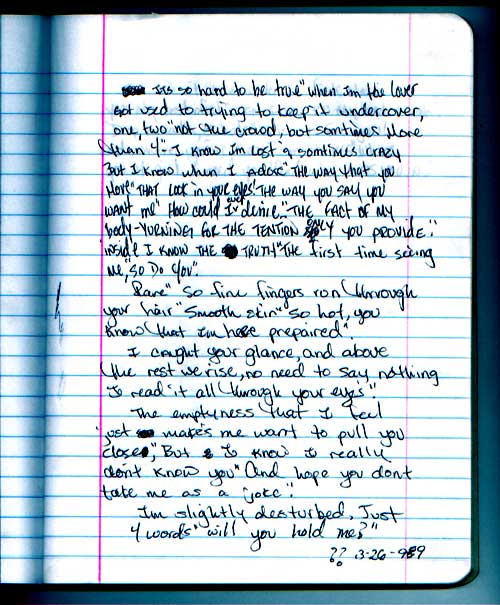 Its so hard to be true" when Im the lover
Got used to trying to keep it undercover,
one, two "not the crowd, but somtimes More
than 4"- I know Im lost & somtimes crazy
But I know when I Adore" THE WAY that you
Move" THAT LOOK in your eyes! THE WAY YOU SAY YOU
WANT me" How could I ever denie." THE FACT OF MY
body-YURNING FOR THE TENTION ONLY YOU PROVIDE."
inside I KNOW THE TRUTH" THE first time seeing
Me," SO DO YOU".
Rare" So fine fingers run through
your hair" Smooth skin" So hot, you
know that Im here prepaired".
I caught your glance, and above
the rest we rise, no need to say nothing
I read it all through your eye's".
The emptyness that I feel
just make's me want to pull you
close", But I know I really
don't know you" And hope you dont
take me as a "joke".
Im slightly desturbed, Just
4 words" will you hold me?"
?? 3-26-